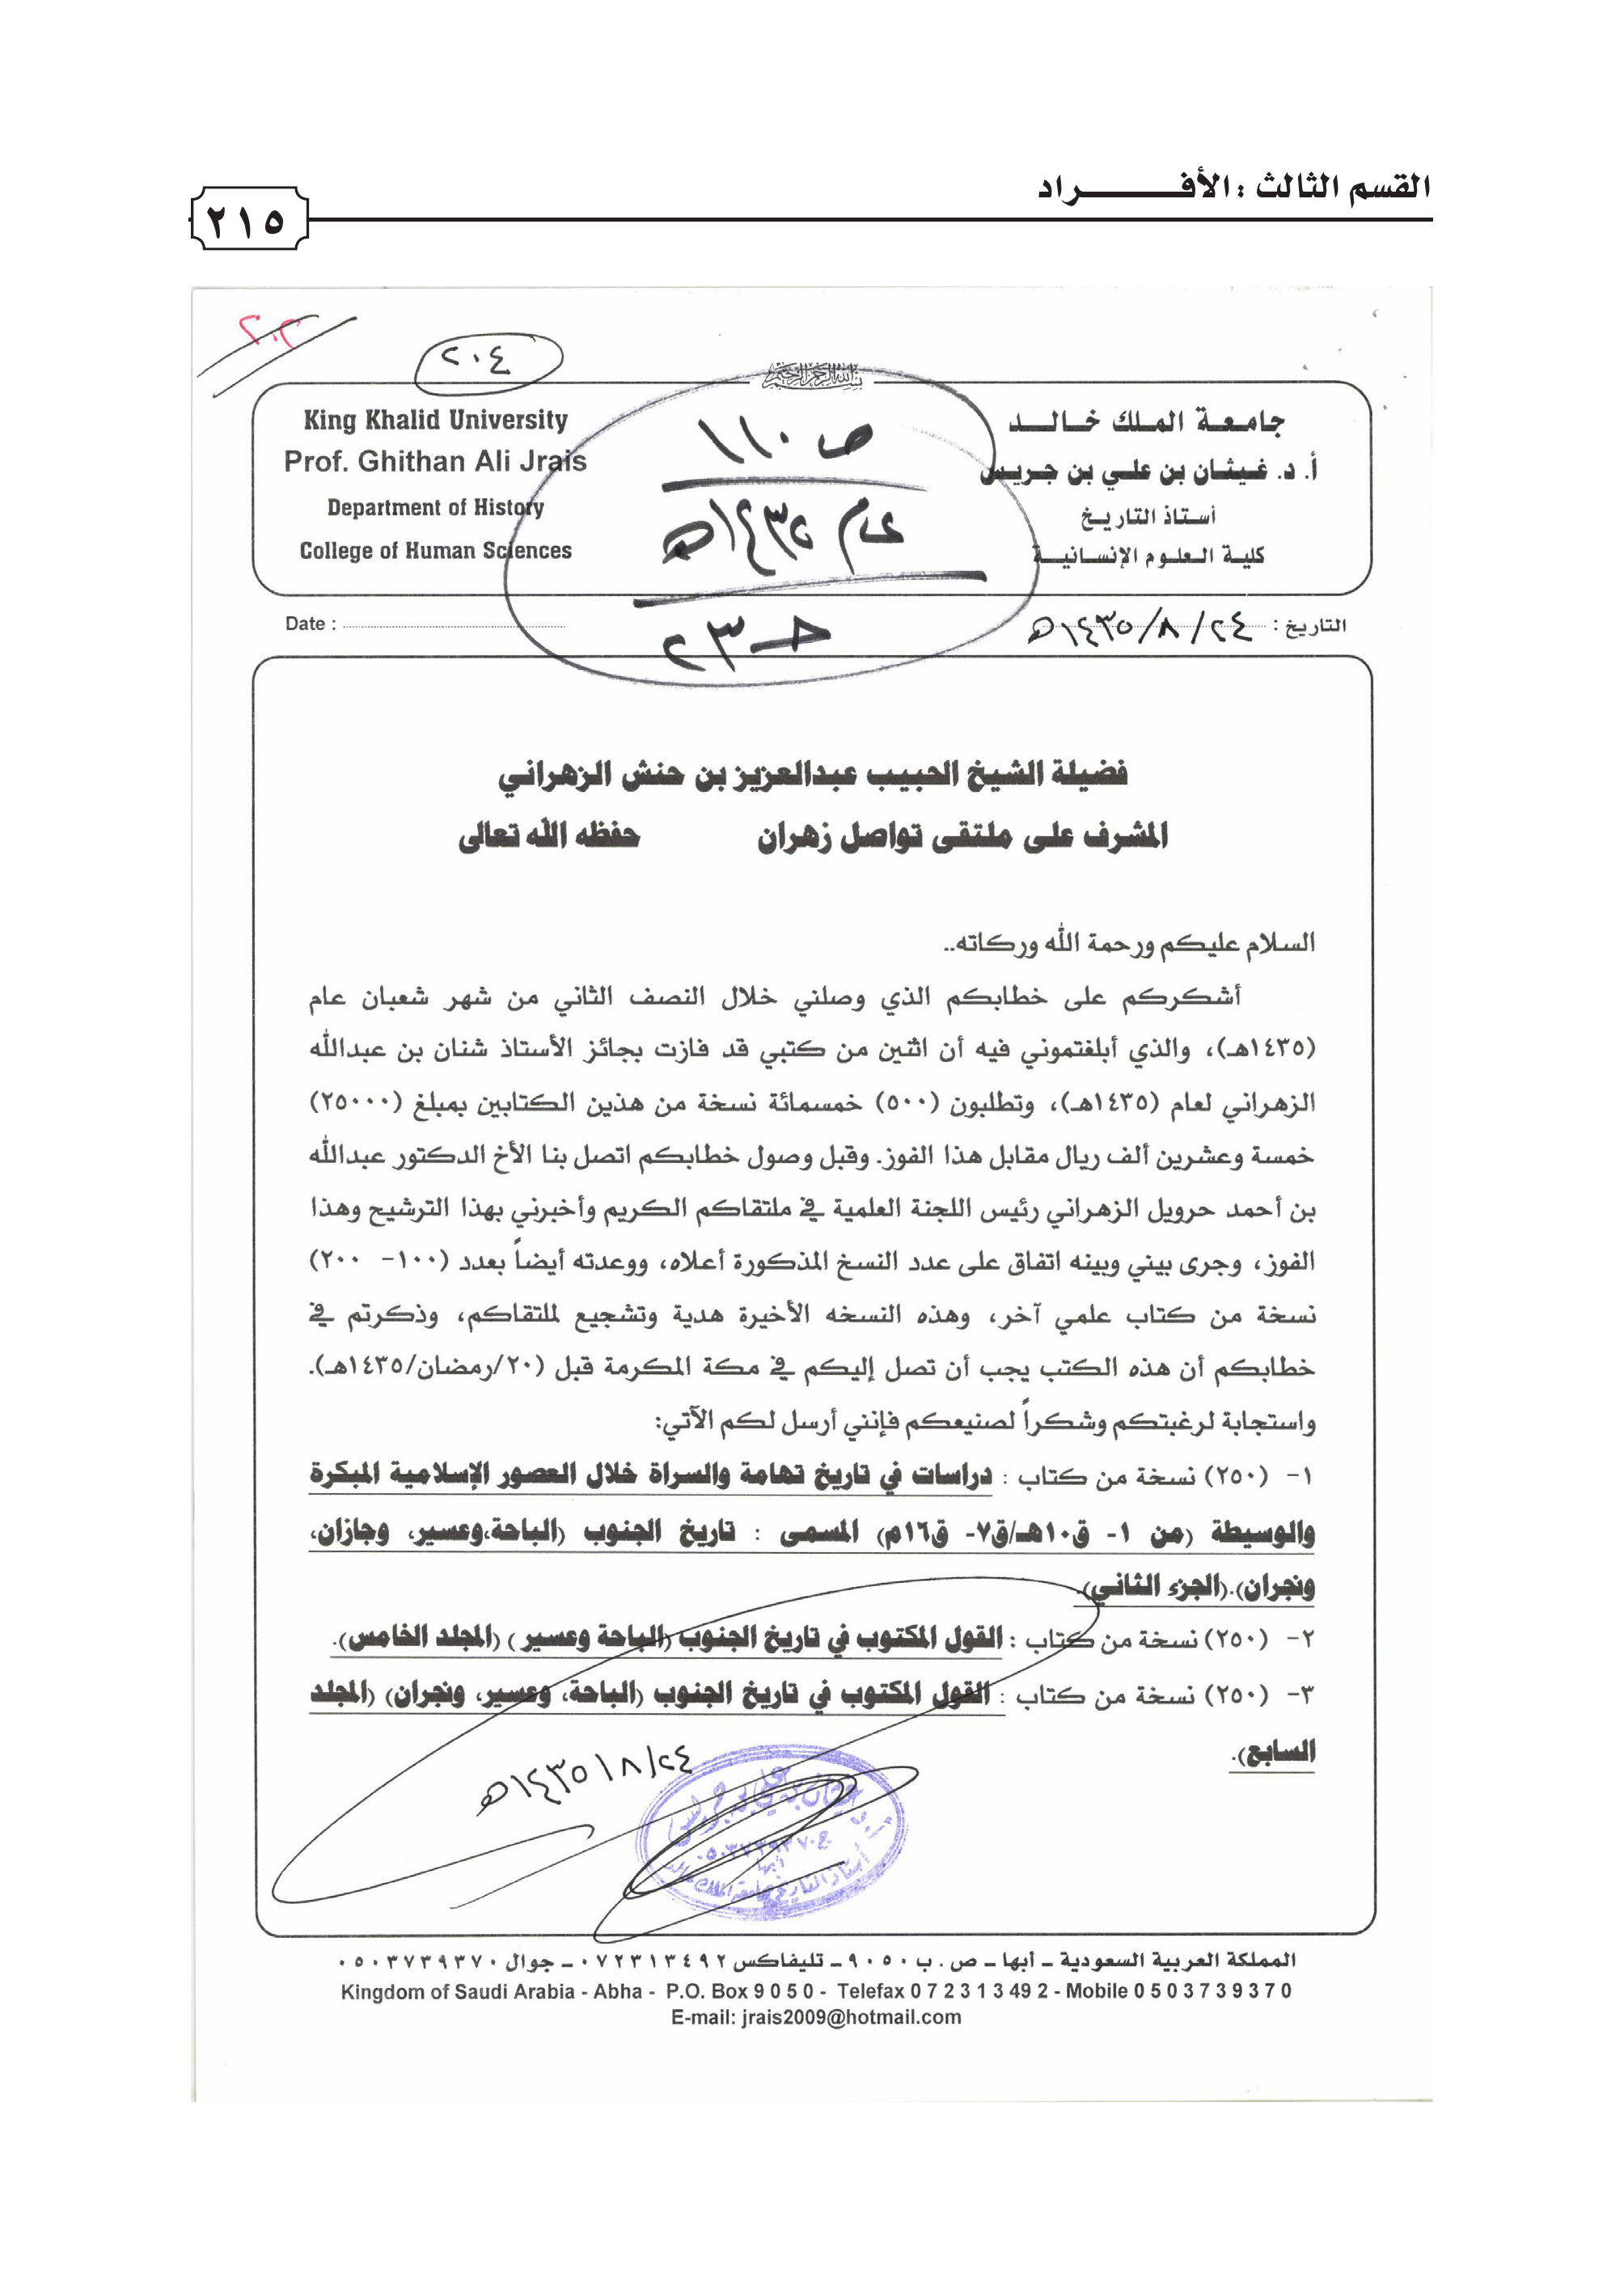 القسم الثالث : الأفـــــــــراد
٢١٥
٢٠٤
بسم الله الرحمن الرحيم
King Khalid University
Prof. Ghithan Ali Jrais
Department of History
College of Human Sciences
جامعة الملك خالد
أ. د. غيثان بن علي بن جريس
أستاذ التاريخ
كلية العلوم الإنسانية
ص ١١٠
عام ١٤٣٥هـ
Date :
التاريخ : ٢٤/٨/١٤٣٥هـ
فضيلة الشيخ الحبيب عبدالعزيز بن حنش الزهراني
المشرف على ملتقى تواصل زهران حفظه الله تعالى
السلام عليكم ورحمة الله وركاته..
أشكركم على خطابكم الذي وصلني خلال النصف الثاني من شهر شعبان عام
(١٤٣٥هـ)، والذي أبلغتموني فيه أن اثنين من كتبي قد فازت بجائز الأستاذ شنان بن عبدالله
الزهراني لعام (١٤٣٥هـ)، وتطلبون (٥٠٠) خمسمائة نسخة من هذين الكتابين بمبلغ (٢٥٠٠٠)
خمسة وعشرين ألف ريال مقابل هذا الفوز. وقبل وصول خطابكم اتصل بنا الأخ الدكتور عبدالله
بن أحمد حرويل الزهراني رئيس اللجنة العلمية في ملتقاكم الكريم وأخبرني بهذا الترشيح وهذا
الفوز، وجرى بيني وبينه اتفاق على عدد النسخ المذكورة أعلاه، ووعدته أيضاً بعدد (١٠٠- ٢٠٠)
نسخة من كتاب علمي آخر، وهذه النسخه الأخيرة هدية وتشجيع لملتقاكم، وذكرتم في
خطابكم أن هذه الكتب يجب أن تصل إليكم في مكة المكرمة قبل (٢٠/رمضان/١٤٣٥هـ).
واستجابة لرغبتكم وشكراً لصنيعكم فإنني أرسل لكم الآتي:
١- (٢٥٠) نسخة من كتاب : دراسات في تاريخ تهامة والسراة خلال العصور الإسلامية المبكرة
والوسيطة (من ١- ق١٠هـ/ق٧- ق١٦م) المسمى : تاريخ الجنوب (الباحة،وعسير، وجازان،
ونجران).(الجزء الثاني).
٢- (٢٥٠) نسخة من كتاب : القول المكتوب في تاريخ الجنوب (الباحة وعسير ) (المجلد الخامس).
٣- (٢٥٠) نسخة من كتاب : القول المكتوب في تاريخ الجنوب (الباحة، وعسير، ونجران) (المجلد
السابع).
٢٤/٨/١٤٣٥هـ
المملكة العربية السعودية ـ أبها ـ ص . ب ٩٠٥٠ ـ تليفاكس ٠٧٢٣١٣٤٩٢ ـ جوال ٠٥٠٣٧٣٩٣٧٠
Kingdom of Saudi Arabia - Abha - P.O. Box 9 0 5 0 - Telefax 0 7 2 3 1 3 49 2 - Mobile 0 5 0 3 7 3 9 3 7 0
E-mail: jrais2009@hotmail.com